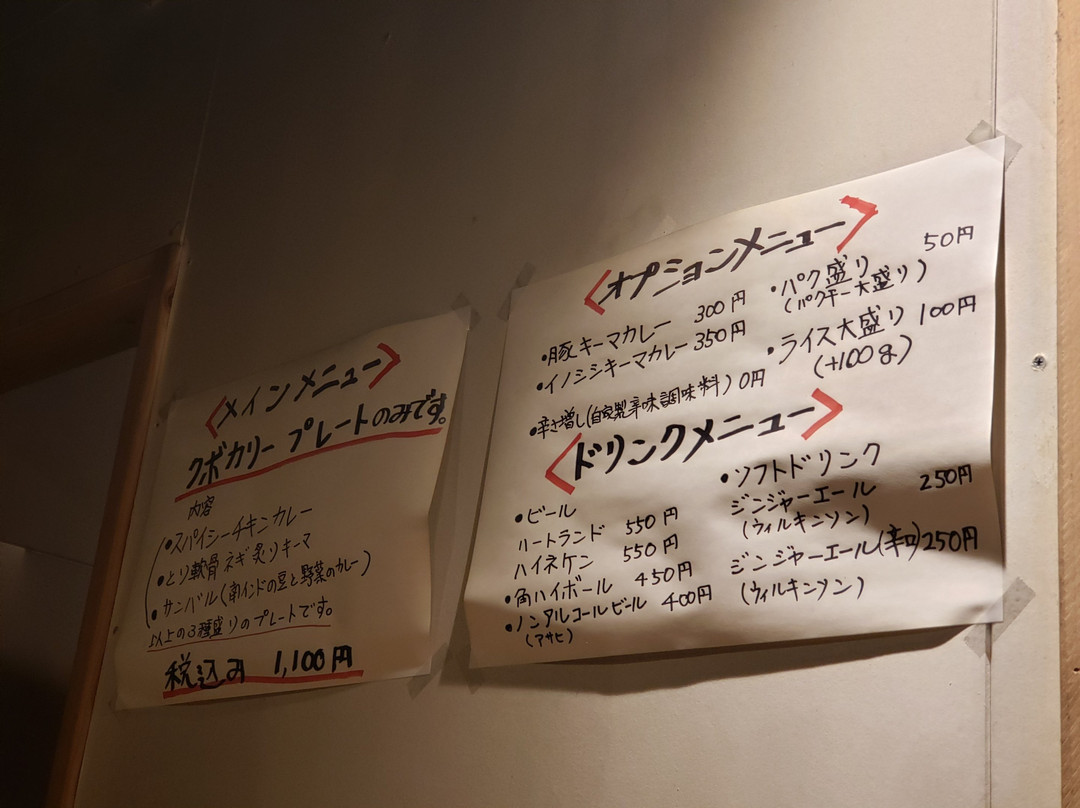 〈メインメニュー〉
クボカリー プレートのみです。
内容
・スパイシーチキンカレー
・とり軟骨ネギ炙りキーマ
・サンバル(南インドの豆と野菜のカレー)
以上の3種盛りのプレートです。
税込み 1,100円
〈オプションメニュー〉
・豚キーマカレー 300円
・イノシシキーマカレー 350円
・辛さ増し(自家製辛味調味料) 0円
・パク盛り 50円
(パクチー大盛り)
・ライス大盛り 100円
(+100g)
〈ドリンクメニュー〉
・ビール
ハートランド 550円
ハイネケン 550円
・角ハイボール 450円
・ノンアルコールビール 400円
(アサヒ)
・ソフトドリンク
ジンジャーエール 250円
(ウィルキンソン)
ジンジャーエール(辛口) 250円
(ウィルキンソン)